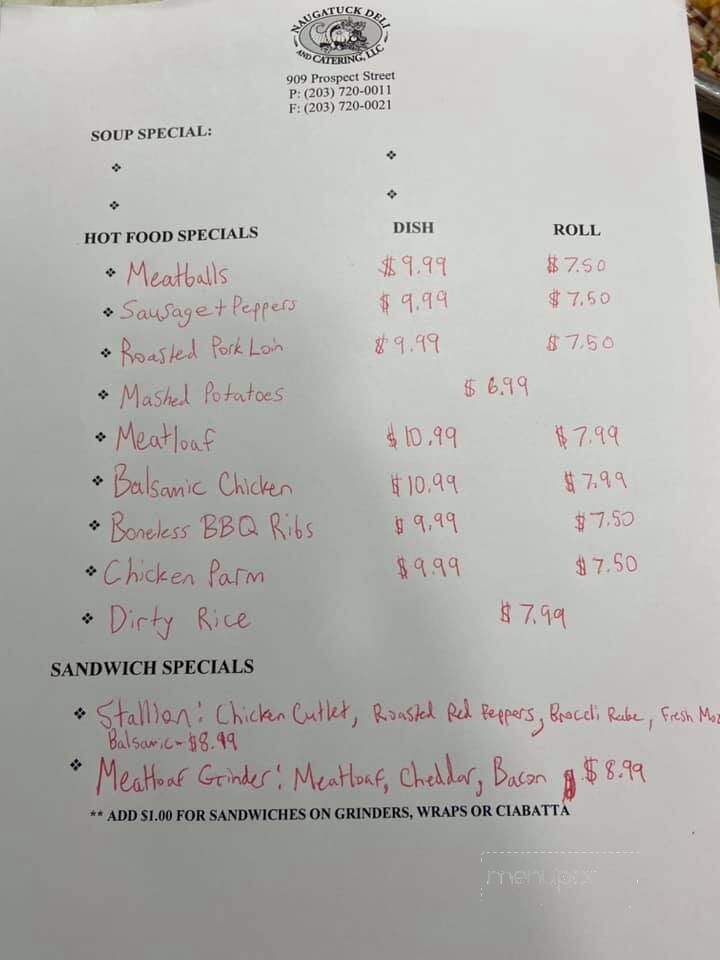 NAUGATUCK DELI
AND CATERING, LLC
909 Prospect Street
P: (203) 720-0011
F: (203) 720-0021
SOUP SPECIAL:
HOT FOOD SPECIALS DISH ROLL
❖ Meatballs $9.99 $7.50
❖ Sausage + Peppers $9.99 $7.50
❖ Roasted Pork Loin $9.99 $7.50
❖ Mashed Potatoes $6.99
❖ Meatloaf $10.99 $7.99
❖ Balsamic Chicken $10.99 $7.99
❖ Boneless BBQ Ribs $9.99 $7.50
❖ Chicken Parm $9.99 $7.50
❖ Dirty Rice $7.99
SANDWICH SPECIALS
❖ Stallion: Chicken Cutlet, Roasted Red Peppers, Broccli Rabe, Fresh Moz
Balsamic - $8.99
❖ Meatloaf Grinder: Meatloaf, Cheddar, Bacon $8.99
** ADD $1.00 FOR SANDWICHES ON GRINDERS, WRAPS OR CIABATTA
menupix